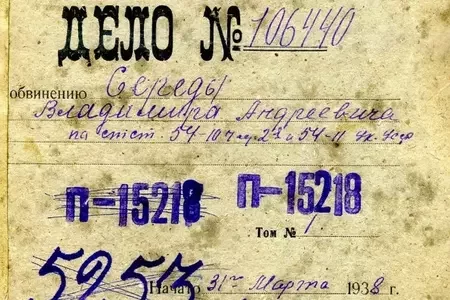 ДЕЛО № 106440
обвинению Середы
Владимира Андреевича
по стст. 54-10 ч. 2 и 54-11 Ук. Усср
П-15218 П-15218
Том № 1
5957
Начато 31го Марта 1938